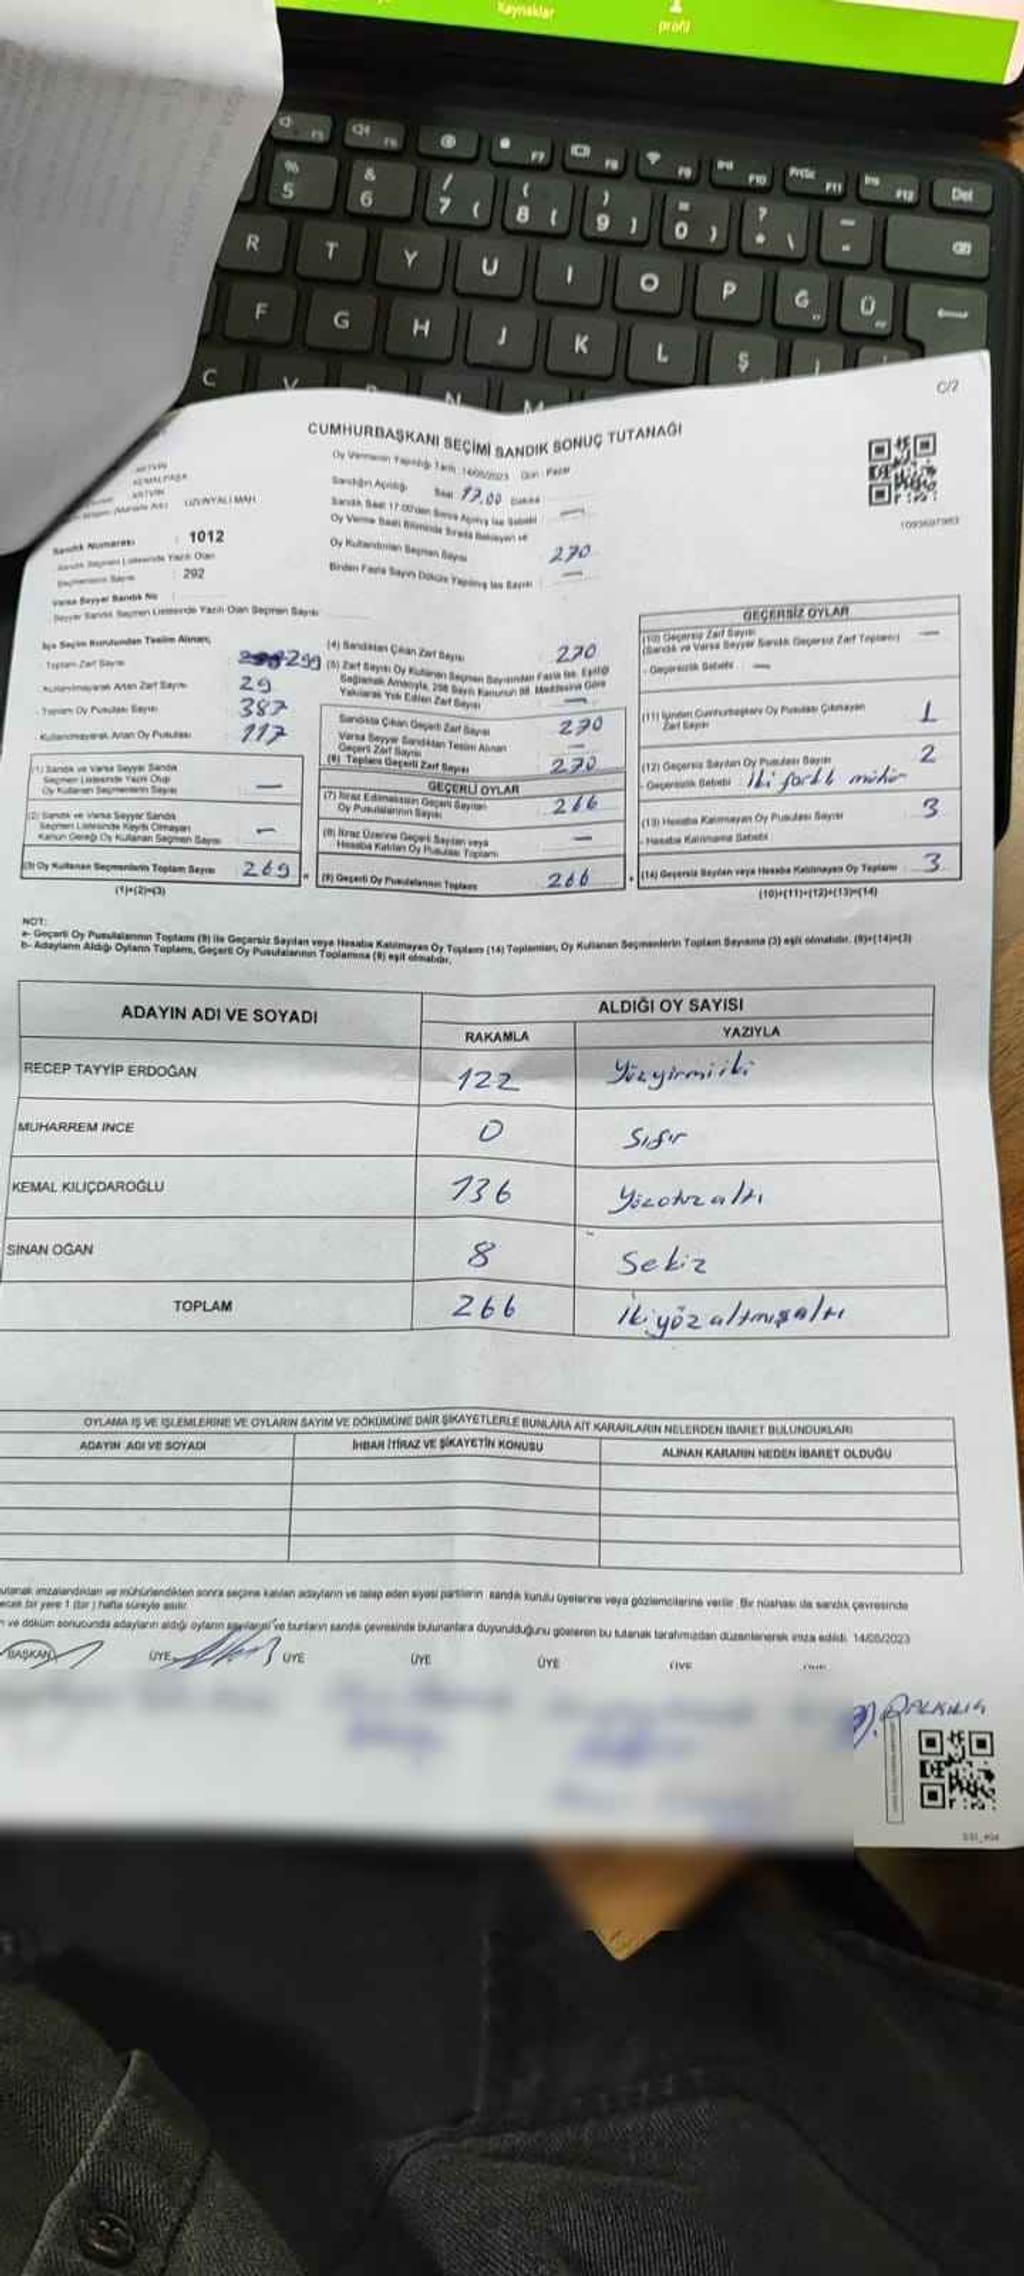 Kaynaklar
profil
F5 F6 F7 F8 F9 F10 PrtSc F11 Ins F12 Del
% 5 & 6 / 7 ( 8 ) 9 = 0 ? * \ -
R T Y U I O P Ğ Ü
F G H J K L Ş İ
C V N M
C/2
CUMHURBAŞKANI SEÇİMİ SANDIK SONUÇ TUTANAĞI
ARTVİN
KEMALPAŞA
ARTVİN
UZUNYALI MAH.
Oy Vermenin Yapıldığı Tarih : 14/05/2023 Gün : Pazar
Sandığın Açıldığı Saat 17.00 Dakika
Sandık Saat 17:00'den Sonra Açılmış İse Sebebi —
Oy Verme Saati Bitiminde Sırada Bekleyen ve
Oy Kullandırılan Seçmen Sayısı 270
Birden Fazla Sayım Döküm Yapılmış İse Sayısı —
Sandık Numarası : 1012
Sandık Seçmen Listesinde Yazılı Olan
Seçmenlerin Sayısı : 292
Varsa Seyyar Sandık No :
Seyyar Sandık Seçmen Listesinde Yazılı Olan Seçmen Sayısı
İlçe Seçim Kurulundan Teslim Alınan;
Toplam Zarf Sayısı 299
- Kullanılmayarak Artan Zarf Sayısı 29
- Toplam Oy Pusulası Sayısı 387
- Kullanılmayarak Artan Oy Pusulası 117
(1) Sandık ve Varsa Seyyar Sandık
Seçmen Listesinde Yazılı Olup
Oy Kullanan Seçmenlerin Sayısı —
(2) Sandık ve Varsa Seyyar Sandık
Seçmen Listesinde Kaydı Olmayan
Kanun Gereği Oy Kullanan Seçmen Sayısı —
(3) Oy Kullanan Seçmenlerin Toplam Sayısı 269 =
(1)+(2)=(3)
(4) Sandıktan Çıkan Zarf Sayısı 270
(5) Zarf Sayısı Oy Kullanan Seçmen Sayısından Fazla İse, Eşitliği
Sağlamak Amacıyla, 298 Sayılı Kanunun 98. Maddesine Göre
Yakılarak Yok Edilen Zarf Sayısı —
Sandıkta Çıkan Geçerli Zarf Sayısı 270
Varsa Seyyar Sandıktan Teslim Alınan
Geçerli Zarf Sayısı —
(6) Toplam Geçerli Zarf Sayısı 270
GEÇERLİ OYLAR
(7) İtiraz Edilmeksizin Geçerli Sayılan
Oy Pusulalarının Sayısı 266
(8) İtiraz Üzerine Geçerli Sayılan veya
Hesaba Katılan Oy Pusulası Toplamı —
(9) Geçerli Oy Pusulalarının Toplamı 266 +
GEÇERSİZ OYLAR
(10) Geçersiz Zarf Sayısı
(Sandık ve Varsa Seyyar Sandık Geçersiz Zarf Toplamı) —
- Geçersizlik Sebebi : —
(11) İçinden Cumhurbaşkanı Oy Pusulası Çıkmayan
Zarf Sayısı 1
(12) Geçersiz Sayılan Oy Pusulası Sayısı 2
- Geçersizlik Sebebi İki farklı mühür
(13) Hesaba Katılmayan Oy Pusulası Sayısı 3
- Hesaba Katılmama Sebebi :
(14) Geçersiz Sayılan veya Hesaba Katılmayan Oy Toplamı 3
(10)+(11)+(12)+(13)=(14)
NOT:
a- Geçerli Oy Pusulalarının Toplamı (9) ile Geçersiz Sayılan veya Hesaba Katılmayan Oy Toplamı (14) Toplamları, Oy Kullanan Seçmenlerin Toplam Sayısına (3) eşit olmalıdır. (9)+(14)=(3)
b- Adayların Aldığı Oyların Toplamı, Geçerli Oy Pusulalarının Toplamına (9) eşit olmalıdır.
ADAYIN ADI VE SOYADI ALDIĞI OY SAYISI
RAKAMLA YAZIYLA
RECEP TAYYİP ERDOĞAN 122 Yüzyirmiiki
MUHARREM İNCE 0 Sıfır
KEMAL KILIÇDAROĞLU 136 Yüzotuzaltı
SİNAN OĞAN 8 Sekiz
TOPLAM 266 İkiyüzaltmışaltı
OYLAMA İŞ VE İŞLEMLERİNE VE OYLARIN SAYIM VE DÖKÜMÜNE DAİR ŞİKAYETLERLE BUNLARA AİT KARARLARIN NELERDEN İBARET BULUNDUKLARI
ADAYIN ADI VE SOYADI İHBAR İTİRAZ VE ŞİKAYETİN KONUSU ALINAN KARARIN NEDEN İBARET OLDUĞU
tutanak imzalandıktan ve mühürlendikten sonra seçime katılan adayların ve talep eden siyasi partilerin sandık kurulu üyelerine veya gözlemcilerine verilir. Bir nüshası da sandık çevresinde
bir yere 1 (bir) hafta süreyle asılır.
ve döküm sonucunda adayların aldığı oyların sayılarını ve bunların sandık çevresinde bulunanlara duyurulduğunu gösteren bu tutanak tarafımızdan düzenlenerek imza edildi. 14/05/2023
BAŞKAN ÜYE ÜYE ÜYE ÜYE ÜYE